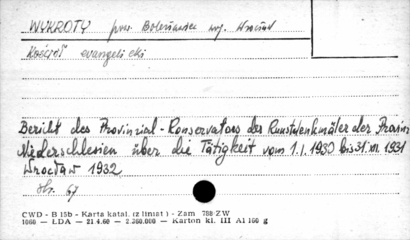 WYKROTY pow. Bolesławiec woj. Wrocław
Kościół evangelicki
Bericht des Provinzial-Konservators der Kunstdenkmäler der Provinz
Niederschlesien über die Tätigkeit vom 1.I.1930 bis 31.XII.1931
Wrocław 1932
str. 67
CWD - B 15b - Karta katal. (z liniat.) - Zam 788 ZW
1060 — LDA — 21.4.60 — 2.260.000 — Karton kl. III A1 160 g